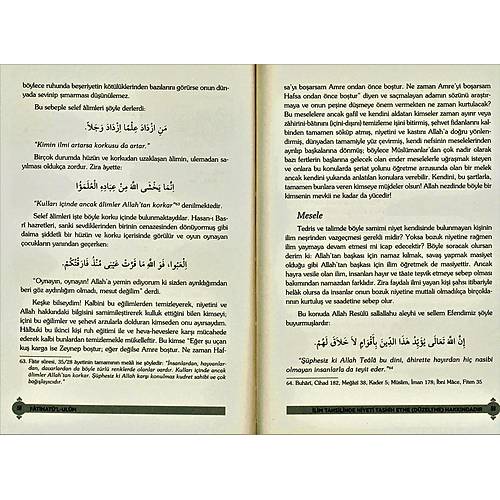 böylece ruhunda beşeriyetin kötülüklerinden bazılarını görürse onun dün-
yada sevinip şımarması düşünülemez.
Bu sebeple selef âlimleri şöyle derlerdi:
مَنِ ازْدَادَ عِلْمًا ازْدَادَ وَجَلًا.
"Kimin ilmi artarsa korkusu da artar."
Birçok durumda hüzün ve korkudan uzaklaşan âlimin, ulemadan sa-
yılması oldukça zordur. Zira âyette:
إِنَّمَا يَخْشَى اللَّهَ مِنْ عِبَادِهِ الْعُلَمَؤُا
"Kulları içinde ancak âlimler Allah'tan korkar"⁶³ denilmektedir.
Selef âlimleri işte böyle korku içinde bulunmaktaydılar. Hasan-ı Bas-
rî hazretleri, sanki sevdiklerinden birinin cenazesinden dönüyormuş gibi
daima şiddetli bir hüzün ve korku içerisinde görülür ve oyun oynayan
çocukların yanından geçerken:
الْعَبُوا، فَوَ اللَّهِ مَا قَرَّتْ عَيْنِى مُنْذُ فَارَقْتُكُمْ.
"Oynayın, oynayın! Allah'a yemin ediyorum ki sizden ayrıldığımdan
beri göz aydınlığım olmadı, mutlu olmadım" derdi.
Keşke bilseydim! Kalbini bu eğilimlerden temizleyerek, niyetini ve
Allah hakkındaki bilgisini samimileştirerek kulluk ettiğini bilen kimseyi;
içini bu eğilimler ve şehevî arzularla dolduran kimseden onu ayırsaydım.
Hâlbuki bu ikinci kişi ruh eğitimi ile ve heva-heveslere karşı mücahede
ederek kalbi bunlardan temizlemekle mükelleftir. Bu kimse "Eğer şu uçan
kuş karga ise Zeynep boştur; eğer değilse Amre boştur. Ne zaman Haf-
63. Fâtır sûresi, 35/28 âyetinin tamamının meâli ise şöyledir: "İnsanlardan, hayvanlar-
dan, davarlardan da böyle türlü renklerde olanlar vardır. Kulları içinde ancak
âlimler Allah'tan korkar. Şüphesiz ki Allah karşı konulmaz kudret sahibi ve çok
bağışlayıcıdır."
FÂTİHATÜ'L-ULÛM
sa'yı boşarsam Amre ondan önce boştur. Ne zaman Amre'yi boşarsam
Hafsa ondan önce boştur" diyen ve saçmalayan adamın sözünü araştır-
maya ve onun peşine düşmeye önem vermekten ne zaman kurtulacak?
Bu meselelere ancak gafil ve kendini aldatan kimseler zaman ayırır veya
zâhirini-bâtınını (içini-dışını) temizleme işini bitirmiş, şehvet fidanlarını kal-
binden tamamen söküp atmış, niyetini ve kastını Allah'a doğru yönlen-
dirmiş, dünyadan tamamiyle yüz çevirmiş, kendi nefsinin meselelerinden
ayrılıp başkalarına dönmüş; böylece Müslümanlar'dan çok nadir olarak
bazı fertlerin başlarına gelecek olan ender meselelerle uğraşmak isteyen
ve onlara bu konularda şeriat yolunu öğretmek arzusunda olan bir melek
ancak kendini yukarıda anlatılan konulara verebilir. Kendini, bu şartlarla,
tamamen bunlara veren kimseye müjdeler olsun! Allah nezdinde böyle bir
kimsenin mevkii ne kadar da yücedir!
Mesele
Tedris ve talimde böyle samimi niyet kendisinde bulunmayan kişinin
ilim neşrinden vazgeçmesi gerekli midir? Yoksa bozuk niyetine rağmen
ilim yaymaya devam etmesi mi icap edecektir? Böyle soracak olursan
derim ki: Allah'tan başkası için namaz kılmak, savaş yapmak masiyet
olduğu gibi Allah'tan başkası için ilim öğretmek de masiyettir. Ancak
hayra vesile olan ilim, insanları hayır ve tâate teşvik etmeye sebep olması
bakımından namazdan farklıdır. Zira faydalı ilmi yayan kişi şahsı itibariyle
helâk olsa da insanlar onun bozuk niyetine muttali olmadıkça birçokla-
rının kurtuluş ve saadetine sebep olur.
Bu konuda Allah Resûlü sallallahu aleyhi ve sellem Efendimiz şöyle
buyurmuşlardır:
إِنَّ اللَّهَ تَعَالَى يُؤَيِّدُ هَذَا الدِّينَ بِأَقْوَامٍ لَا خَلَاقَ لَهُمْ.
"Şüphesiz ki Allah Teâlâ bu dini, âhirette hayırdan hiç nasibi
olmayan insanlarla da teyit eder."⁶⁴
64. Buhârî, Cihad 182, Meğâzî 38, Kader 5; Müslim, İman 178; İbni Mâce, Fiten 35
İLİM TAHSİLİNDE NİYETİ TASHİH ETME (DÜZELTME) HAKKINDADIR